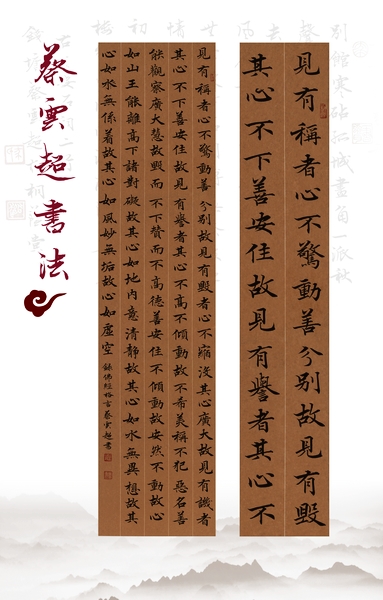 別館寒砧孤城畫角一派秋
見有稱者心不驚動善分別故見有毀
其心不下善安住故見有譽者其心不
見有稱者心不驚動善分別故見有毀者心不縮沒其心廣大故見有譏者
其心不下善安住故見有譽者其心不高不傾動故不希美稱不犯惡名善
能觀察廣大慧故毀而不下贊而不高德善安住不傾動故安然不動故心
如山王能離高下諸對礙故其心如地內意清靜故其心如水無異想故其
心如水無係着故其心如風妙無垢故心如虛空 錄佛經格言蔡雲超書
蔡雲超書法